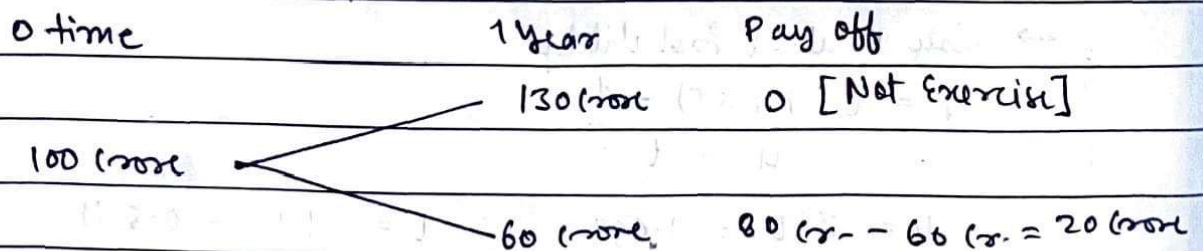 0 time 1 Year Pay off
130 Crore 0 [Not Exercise]
100 Crore
60 Crore. 80 Cr. - 60 Cr. = 20 Crore